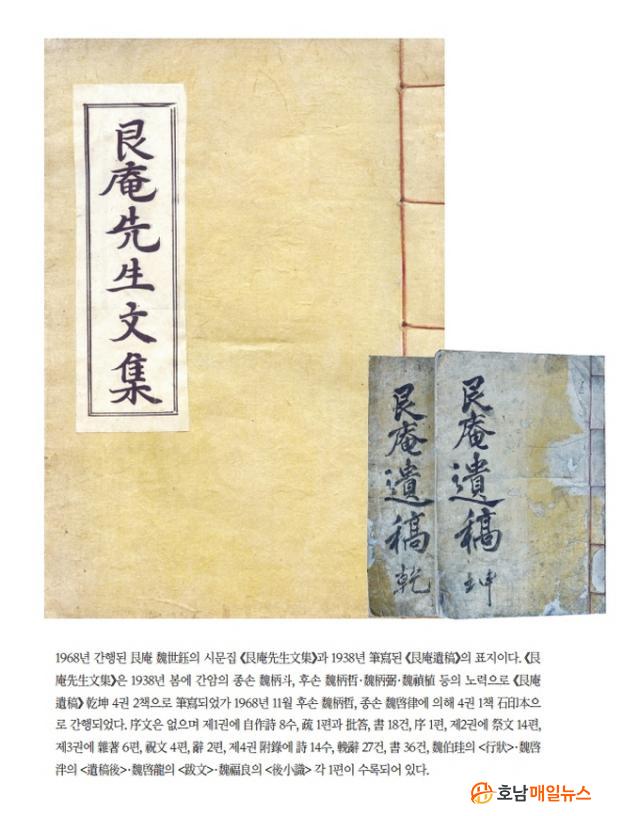 艮庵先生文集
艮庵遺稿 乾
艮庵遺稿 坤
1968년 간행된 艮庵 魏世鈺의 시문집 《艮庵先生文集》과 1938년 筆寫된 《艮庵遺稿》의 표지이다. 《艮
庵先生文集》은 1938년 봄에 간암의 종손 魏柄斗, 후손 魏柄哲·魏柄弼·魏禎植 등의 노력으로 《艮庵
遺稿》 乾坤 4권 2책으로 筆寫되었가 1968년 11월 후손 魏柄哲, 종손 魏啓律에 의해 4권 1책 石印本으
로 간행되었다. 序文은 없으며 제1권에 自作詩 8수, 疏 1편과 批答, 書 18건, 序 1편, 제2권에 祭文 14편,
제3권에 雜著 6편, 祝文 4편, 辭 2편, 제4권 附錄에 詩 14수, 輓辭 27건, 書 36건, 魏伯珪의 <行狀>·魏啓
泮의 <遺稿後>·魏啓龍의 <跋文>·魏福良의 <後小識> 각 1편이 수록되어 있다.
호남매일뉴스